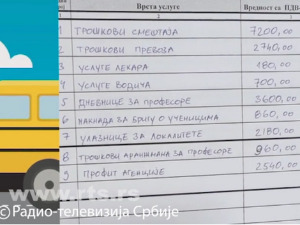 Врста услуге Вредност са ПДВ
1 2
1 ТРОШКОВИ СМЕШТАЈА 7200,00
2 ТРОШКОВИ ПРЕВОЗА 2740,00
3 УСЛУГЕ ЛЕКАРА 180,00
4 УСЛУГЕ ВОДИЧА 700,00
5 ДНЕВНИЦЕ ЗА ПРОФЕСОРЕ 3600,00
6 НАКНАДА ЗА БРИГУ О УЧЕНИЦИМА 860,00
7 УЛАЗНИЦЕ ЗА ЛОКАЛИТЕТЕ 2180,00
8 ТРОШКОВИ АРАНЖМАНА ЗА ПРОФЕСОРЕ 960,00
9 ПРОФИТ АГЕНЦИЈЕ 2540,00
www.rts.rs
©Радио-телевизија Србије